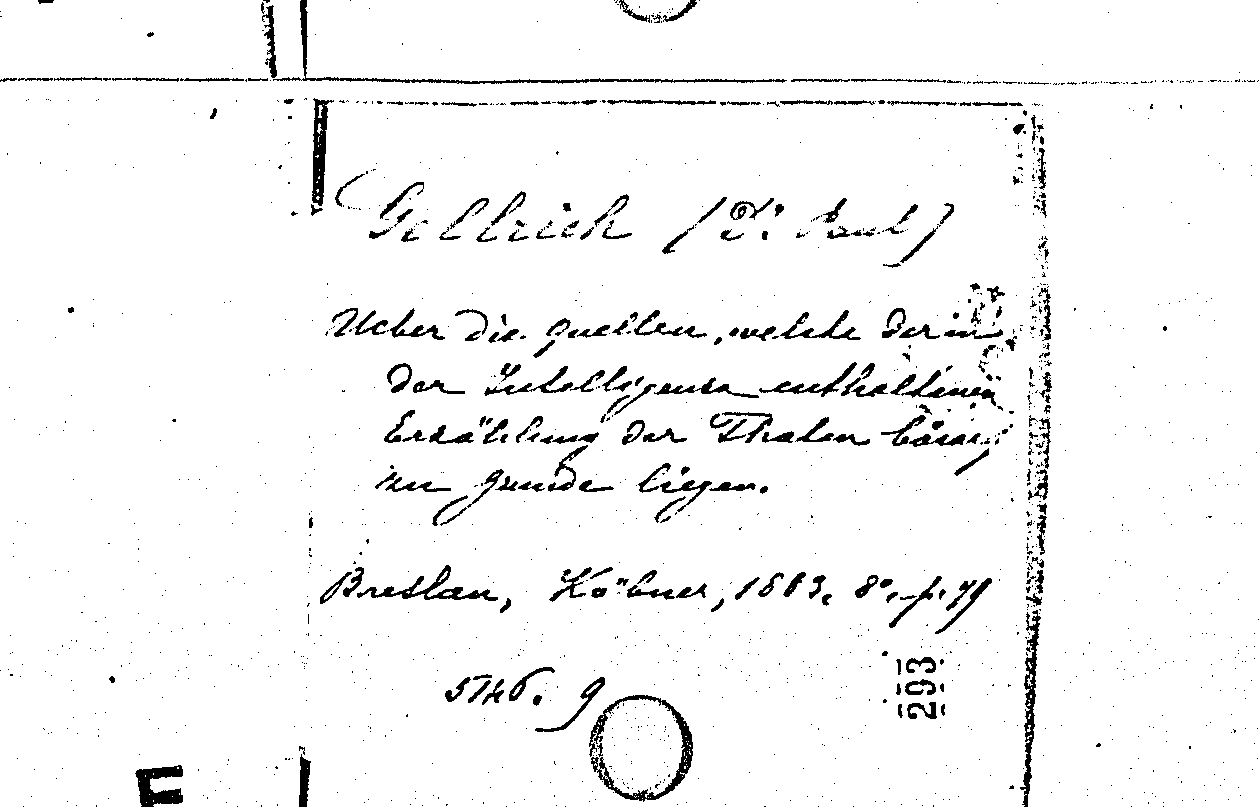 Gellrich (Dr. Paul)
Ueber die quellen, welche der in
der Intelligenza enthaltenen
Erzählung der Thaten Cäsars
zu grunde liegen.
Breslau, Köbner, 1883. 8°. p. 79
5146. g
293
E